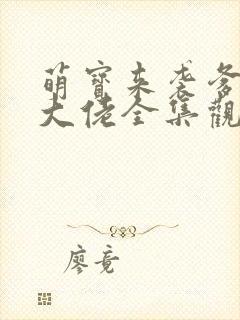 萌寶来袭爹
大佬全集觀
廖竟